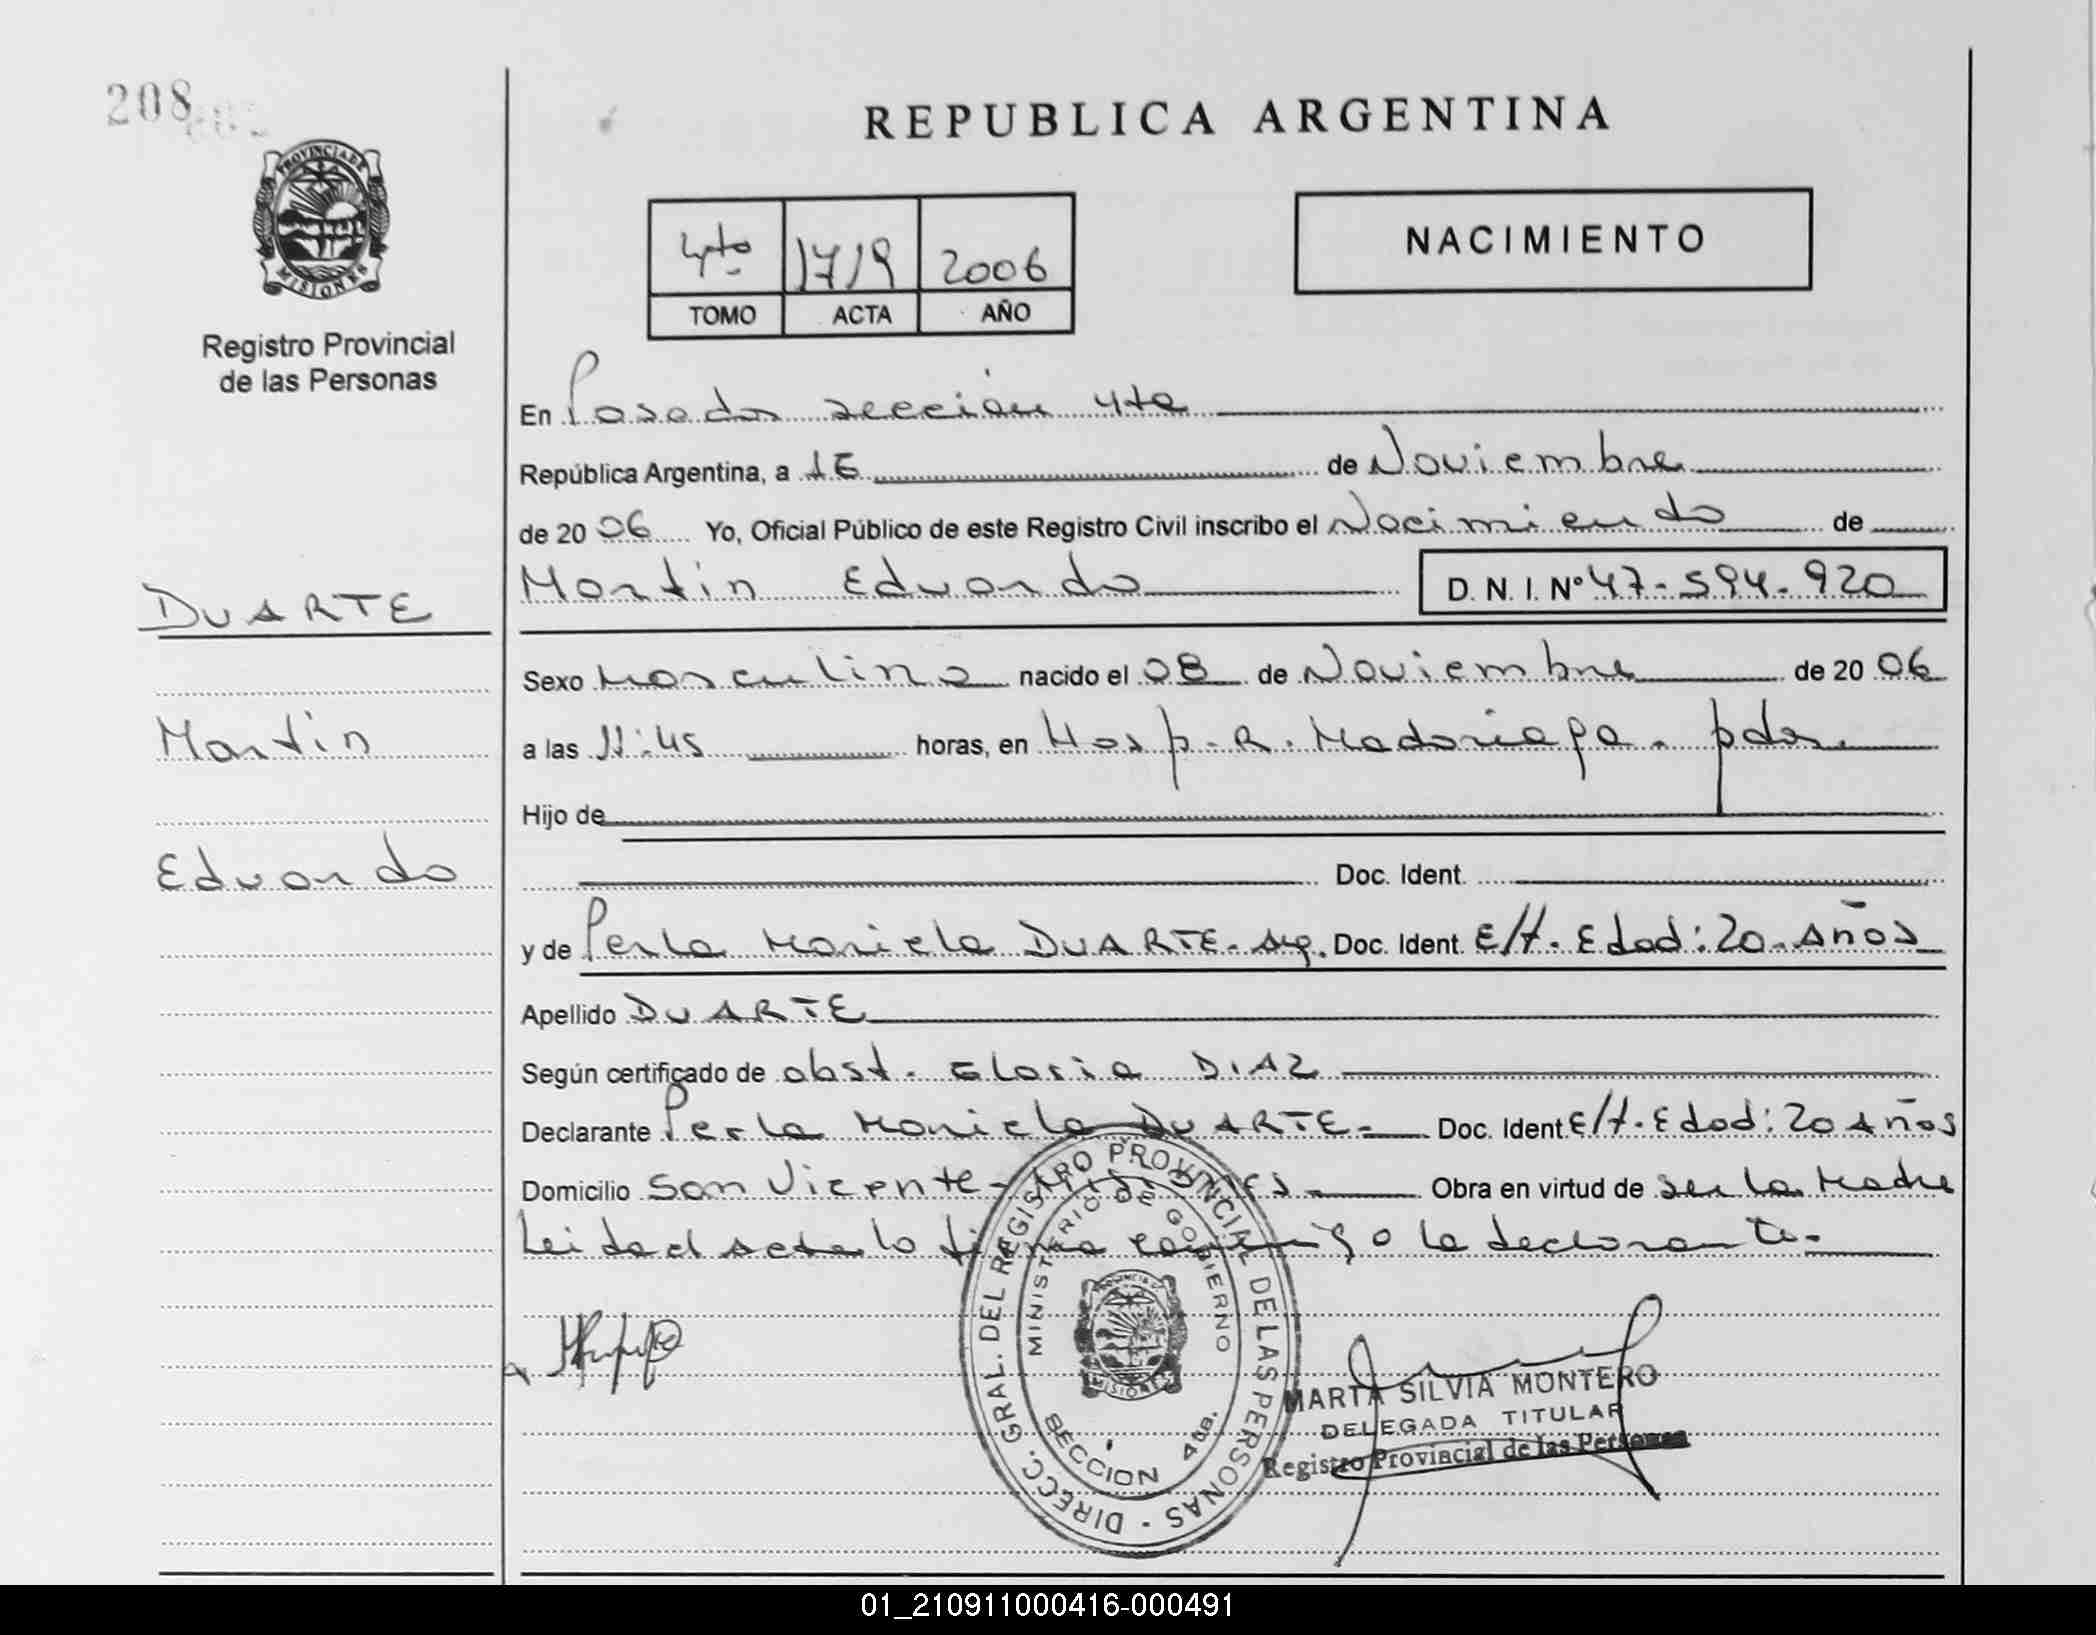 208
REPUBLICA ARGENTINA
PROVINCIA DE
MISIONES
Registro Provincial
de las Personas
4to 1719 2006
TOMO ACTA AÑO
NACIMIENTO
En Posadas sección 4ta
República Argentina, a 16 de Noviembre
de 2006 Yo, Oficial Público de este Registro Civil inscribo el Nacimiento de
Martin Eduardo D. N. I. Nº 47-594-920
DUARTE
Martin
Eduardo
Sexo Masculino nacido el 08 de Noviembre de 2006
a las 11:45 horas, en Hosp. R. Madariaga. pdas.
Hijo de
Doc. Ident.
y de Perla Mariela DUARTE - Arg. Doc. Ident. E/t. Edad: 20 - Años
Apellido DUARTE
Según certificado de obst. Gloria DIAZ
Declarante Perla Mariela DUARTE - Doc. Ident E/t. Edad: 20 Años
Domicilio San Vicente - Obra en virtud de ser la Madre
Leida el acta la firma conmigo la declarante.-
DIRECC. GRAL. DEL REGISTRO PROVINCIAL DE LAS PERSONAS -
MINISTERIO DE GOBIERNO
MISIONES
SECCION
MARTA SILVIA MONTERO
DELEGADA TITULAR
Registro Provincial de las Personas
01_210911000416-000491